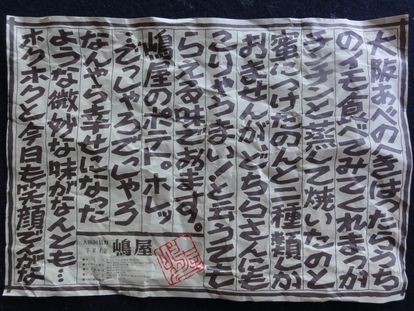 大阪あべのへきはったらうち
のイモ食べてみてくれまっか
キチンと蒸して焼いたのと
蜜につけたんと二種類しか
おませんがどちらさんにも
こりゃうまい!と云うても
らえる味でおます。
嶋屋のポテト。ホレッ
ええでっしゃろでっしゃろ
なんやら幸せになった
ような微妙な味がなんとも…
ホクホクと今日も笑顔でんがな
嶋屋